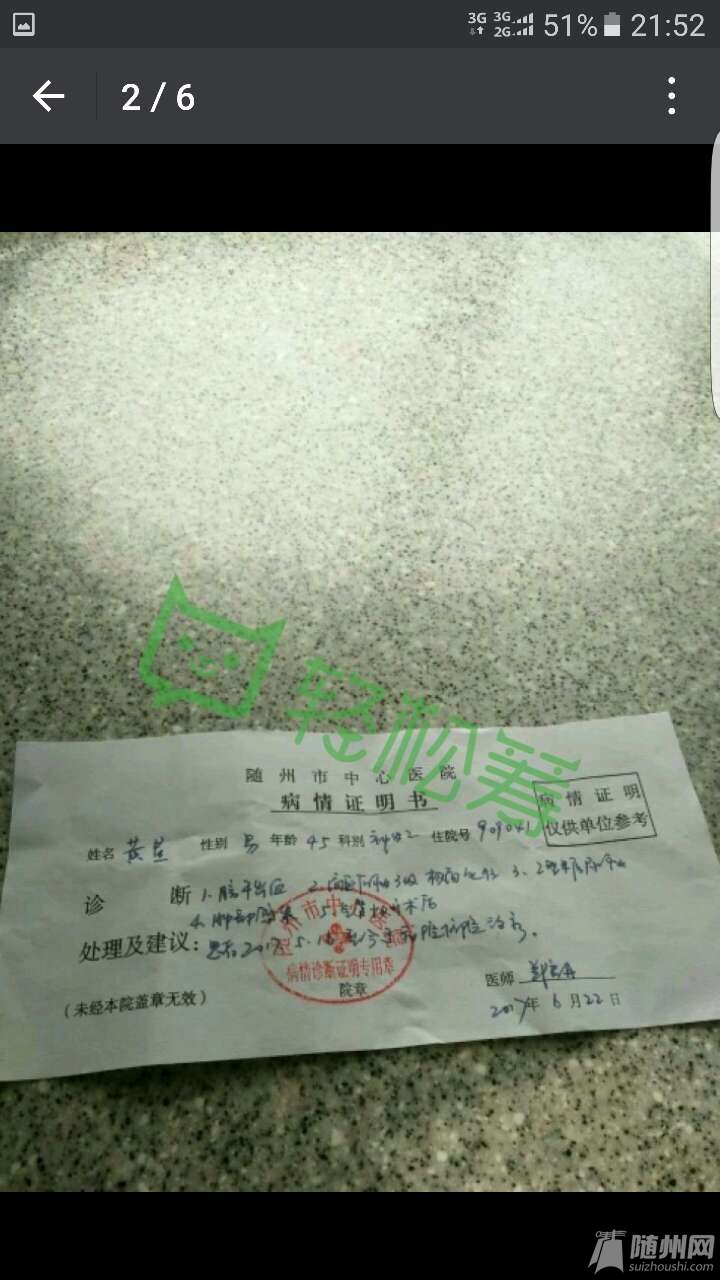 3G 3G 2G 51% 21:52
2 / 6
轻松筹
随州市中心医院
病情证明书
病情证明
仅供单位参考
姓名 黄 性别 男 年龄 45 科别 神经2 住院号 909041
诊断 1.脑干出血 2. 3.
4.肺部感染 5.气管切开术后
处理及建议: 患者2017.5.18至今在我院住院治疗。
病情诊断证明专用章
院章
医师
(未经本院盖章无效)
2017年 6月22日
随州网
suizhoushi.com